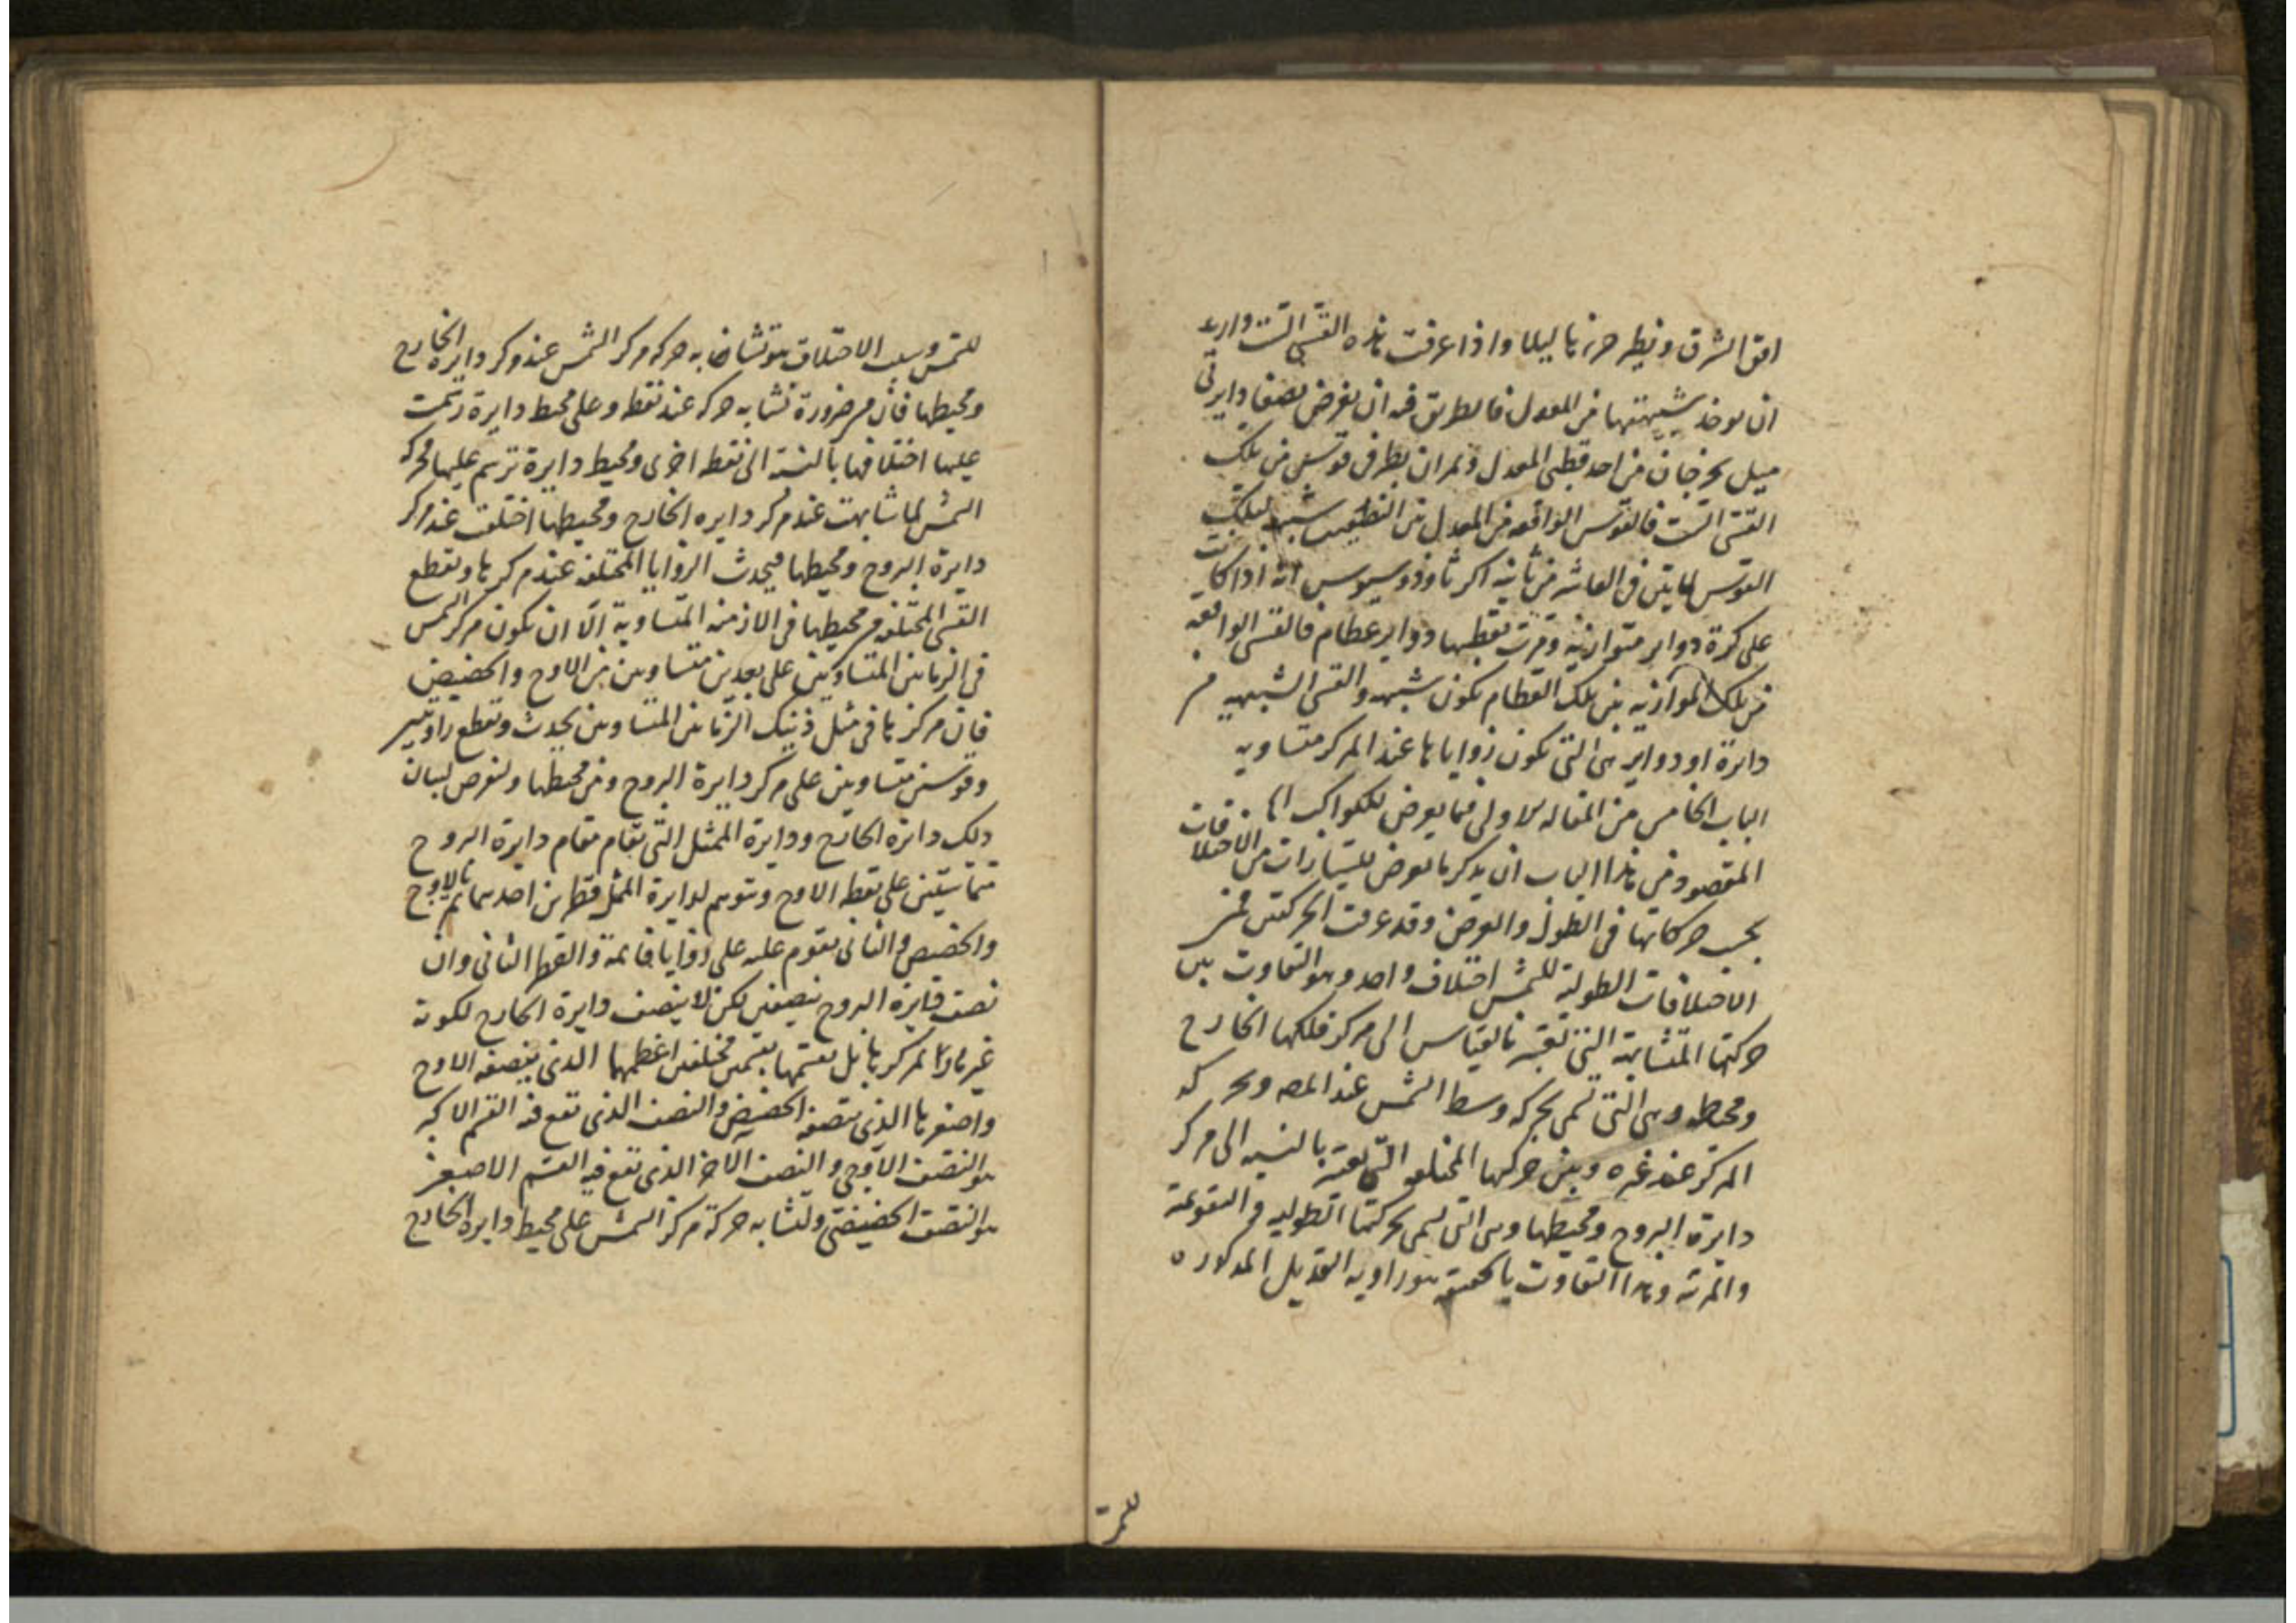 افق الشرق ونظير جزءها ليلا واذا عرفت هذه القسى الست واريد
ان يوخذ شبيهتها من المعدل فالطريق فيه ان يفرض نصفا دايرتى
ميل يخرجان من احد قطبى المعدل ويمران بطرفى قوس من تلك
القسى الست فالقوس الواقعه من المعدل بين النصفين شبيهه لتلك
القوس لما تبين فى العاشر من ثانيه اكر ثاوذوسيوس انه اذا كانت
على كرة دواير متوازيه ومرت بقطبها دواير عظام فالقسى الواقعه
من تلك الموازيه بين تلك العظام يكون شبيهه والقسى الشبيهه من
دايرة او دواير هى التى تكون زواياها عند المركز متساويه
الباب الخامس من المقاله الاولى فيما يعرض للكواكب
المقصود من هذا الباب ان يذكر ما يعرض للسيارات من الاختلافات
بحسب حركاتها فى الطول والعرض وقد عرفت الحركتين فمن
الاختلافات الطولية للشمس اختلاف واحد وهو التفاوت بين
حركتها المتشابهة التى تعتبر بالقياس الى مركز فلكها الخارج
ومحيطه وهى التى تسمى بحركه وسط الشمس عند المص وبحركه
المركز عند غيره وبين حركتها المختلفه التى تعتبر بالنسبه الى مركز
دايرة البروج ومحيطها وهى التى تسمى بحركتها الطوليه والتقويمية
والمرئيه وهذا التفاوت بالحقيقه هو زاويه التعديل المذكوره
للشمس
للشمس وسبب الاختلاف هو تشابه حركه مركز الشمس عند مركز دايره الخارج
ومحيطها فان من ضرورة تشابه حركه عند نقطه وعلى محيط دايرة رسمت
عليها اختلافها بالنسبة الى نقطه اخرى ومحيط دايرة ترسم عليها فحركه
الشمس لما تشابهت عند مركز دايره الخارج ومحيطها اختلفت عند مركز
دايرة البروج ومحيطها فيحدث الزوايا المختلفه عند مركزها وتقطع
القسى المختلفه من محيطها فى الازمنه المتساوية الا ان تكون مركز الشمس
فى الزمانين المتساويين على بعدين متساويين من الاوج والحضيض
فان مركزها فى مثل ذينك الزمانين المتساويين يحدث وتقطع زاويتين
وقوسين متساويين على مركز دايرة البروج ومن محيطها ولنفرض لبيان
ذلك دائرة الخارج ودايرة الممثل التى تقام مقام دايرة البروج
متماستين على نقطه الاوج ونتوهم لدايرة الممثل قطرين احدهما يمر بالاوج
والحضيض والثانى يقوم عليه على زوايا قائمة والقطر الثانى وان
نصف دايرة البروج بنصفين لكن لا ينصف دايرة الخارج لكونه
غير مار بمركزها بل يقسمها بقسمين مختلفين اعظمهما الذى ينصفه الاوج
واصغرها الذى ينصفه الحضيض والنصف الذى تقع فيه القسم الاكبر
هو النصف الاوجى والنصف الاخر الذى تقع فيه القسم الاصغر
هو النصف الحضيضى ولتشابه حركة مركز الشمس على محيط دايره الخارج